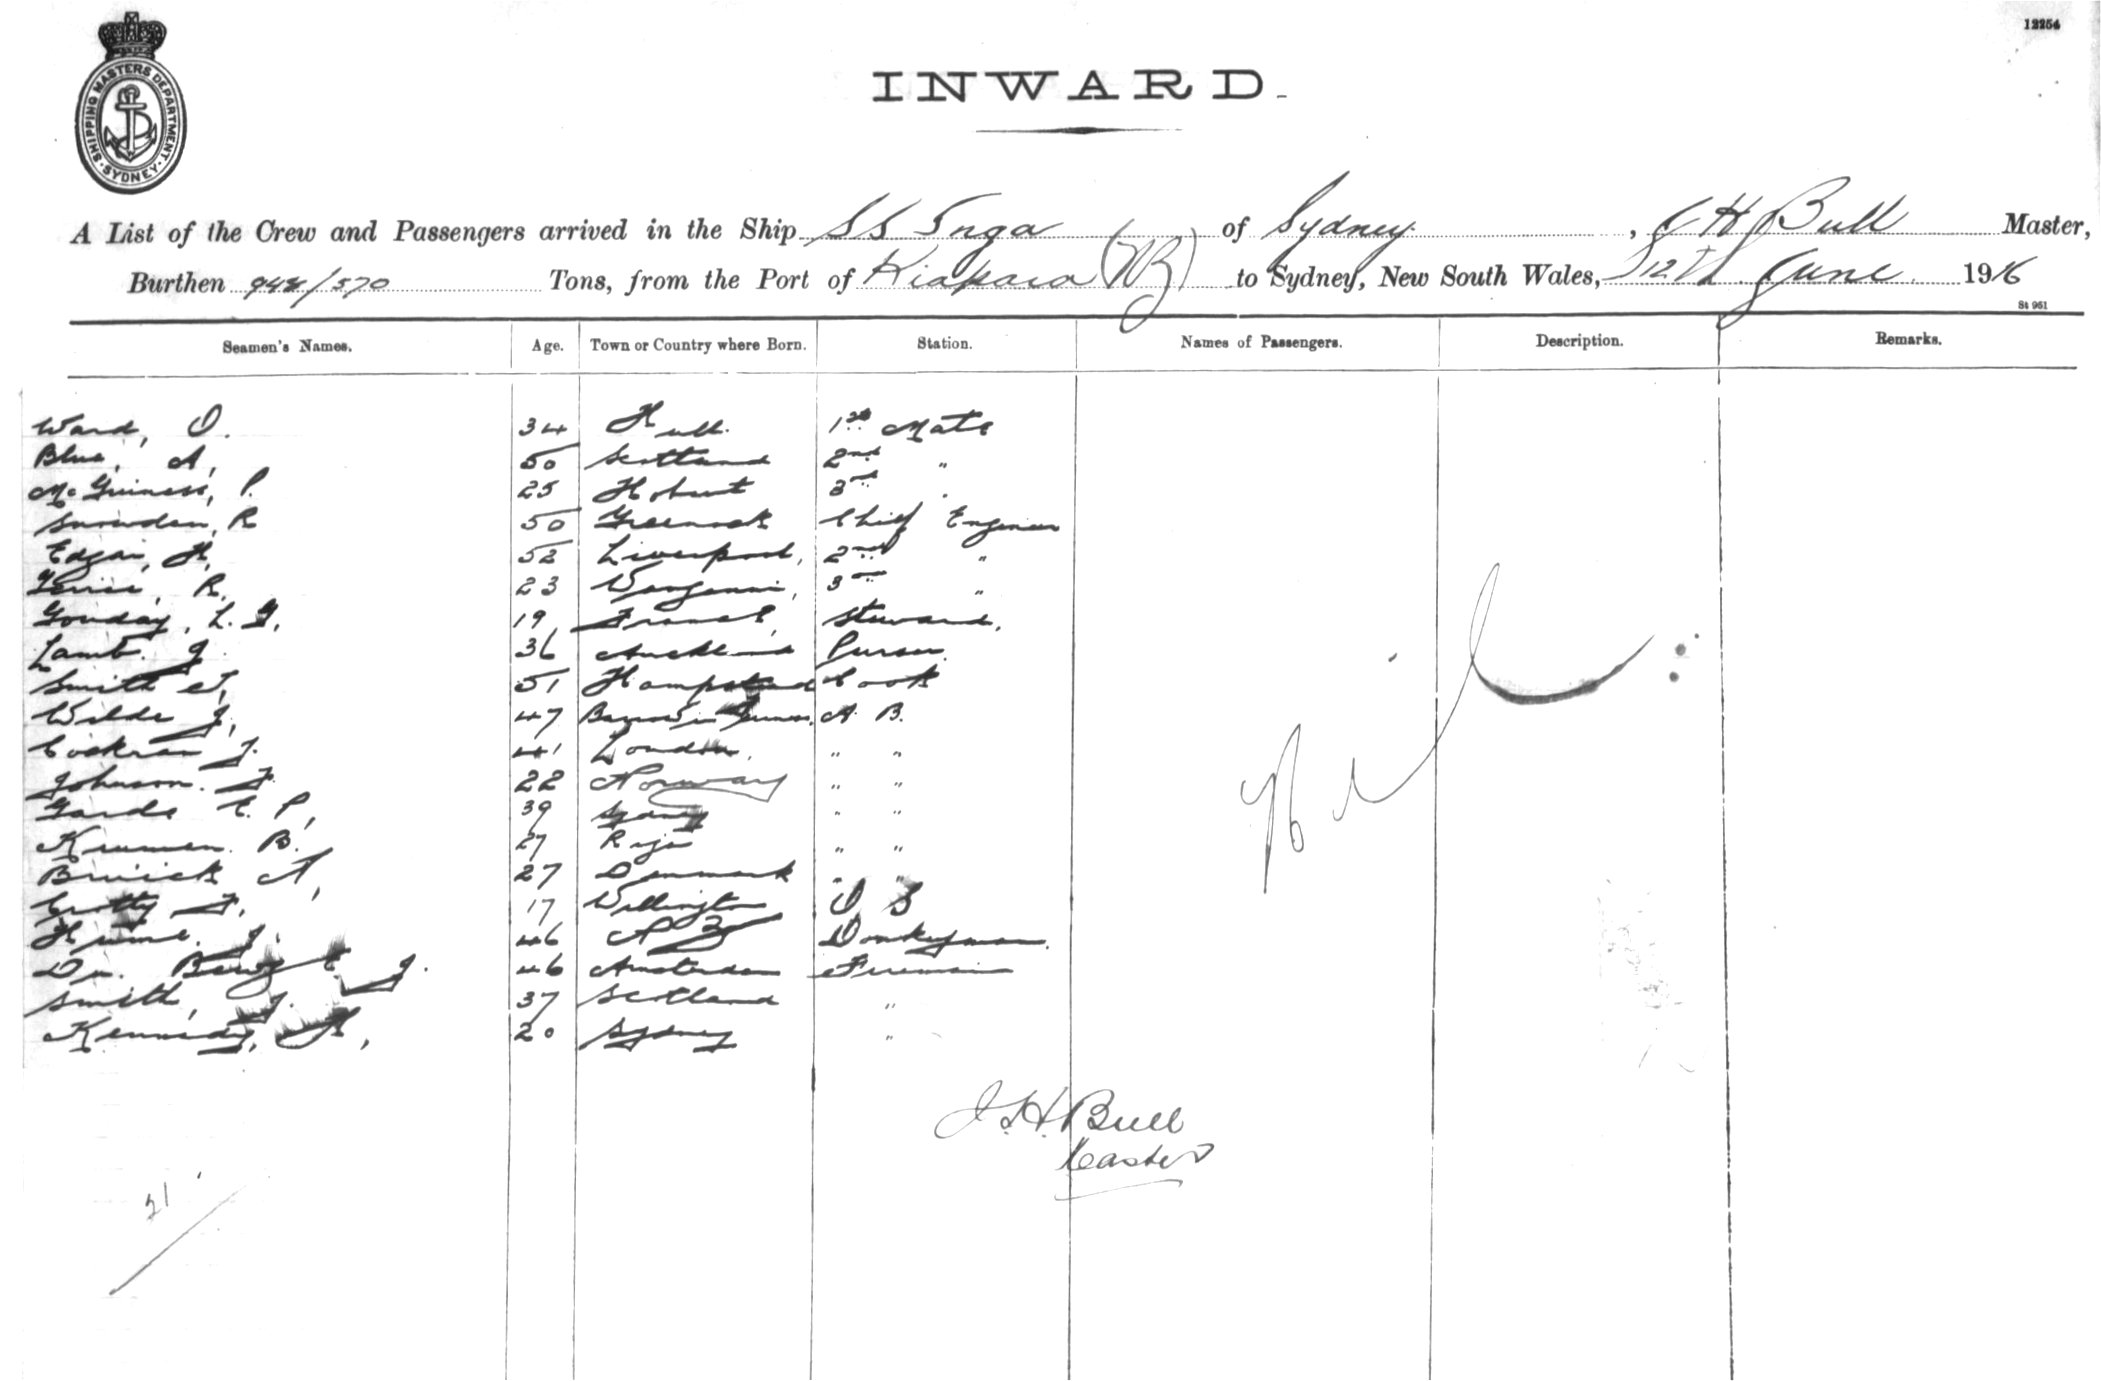 12254
SHIPPING MASTERS DEPARTMENT · SYDNEY ·
INWARD.
A List of the Crew and Passengers arrived in the Ship SS Inga of Sydney, J H Bull Master,
Burthen 948/570 Tons, from the Port of (NZ) to Sydney, New South Wales, 12th June 1916
St 961
Seamen's Names. Age. Town or Country where Born. Station. Names of Passengers. Description. Remarks.
Ward, O. 34 Hull. 1st Mate
Blue, A, 50 Scotland 2nd "
McGuiness, P. 25 Hobart 3rd "
Snowden, R 50 Greenock Chief Engineer
Edgar, H, 52 Liverpool, 2nd "
R. 23 3rd "
L. G. 19 France, Steward,
Lamb. J. 36 Auckland Purser
Smith 51 Hampstead Cook
Wilde J, 47 Barrow in Furness. A. B.
Cockran J. 41 London, " "
Johnson. F. 22 Norway " "
Garde E. P, 39 Sydney " "
B. 27 Riga " "
A, 27 Denmark " "
Crotty 17 Wellington O S
Hume. J. 46 N Z Donkeyman.
J. 46 Amsterdam Fireman
Smith, J. 37 Scotland "
Kennedy, H, 20 Sydney "
Nil
J. H. Bull
Master
21